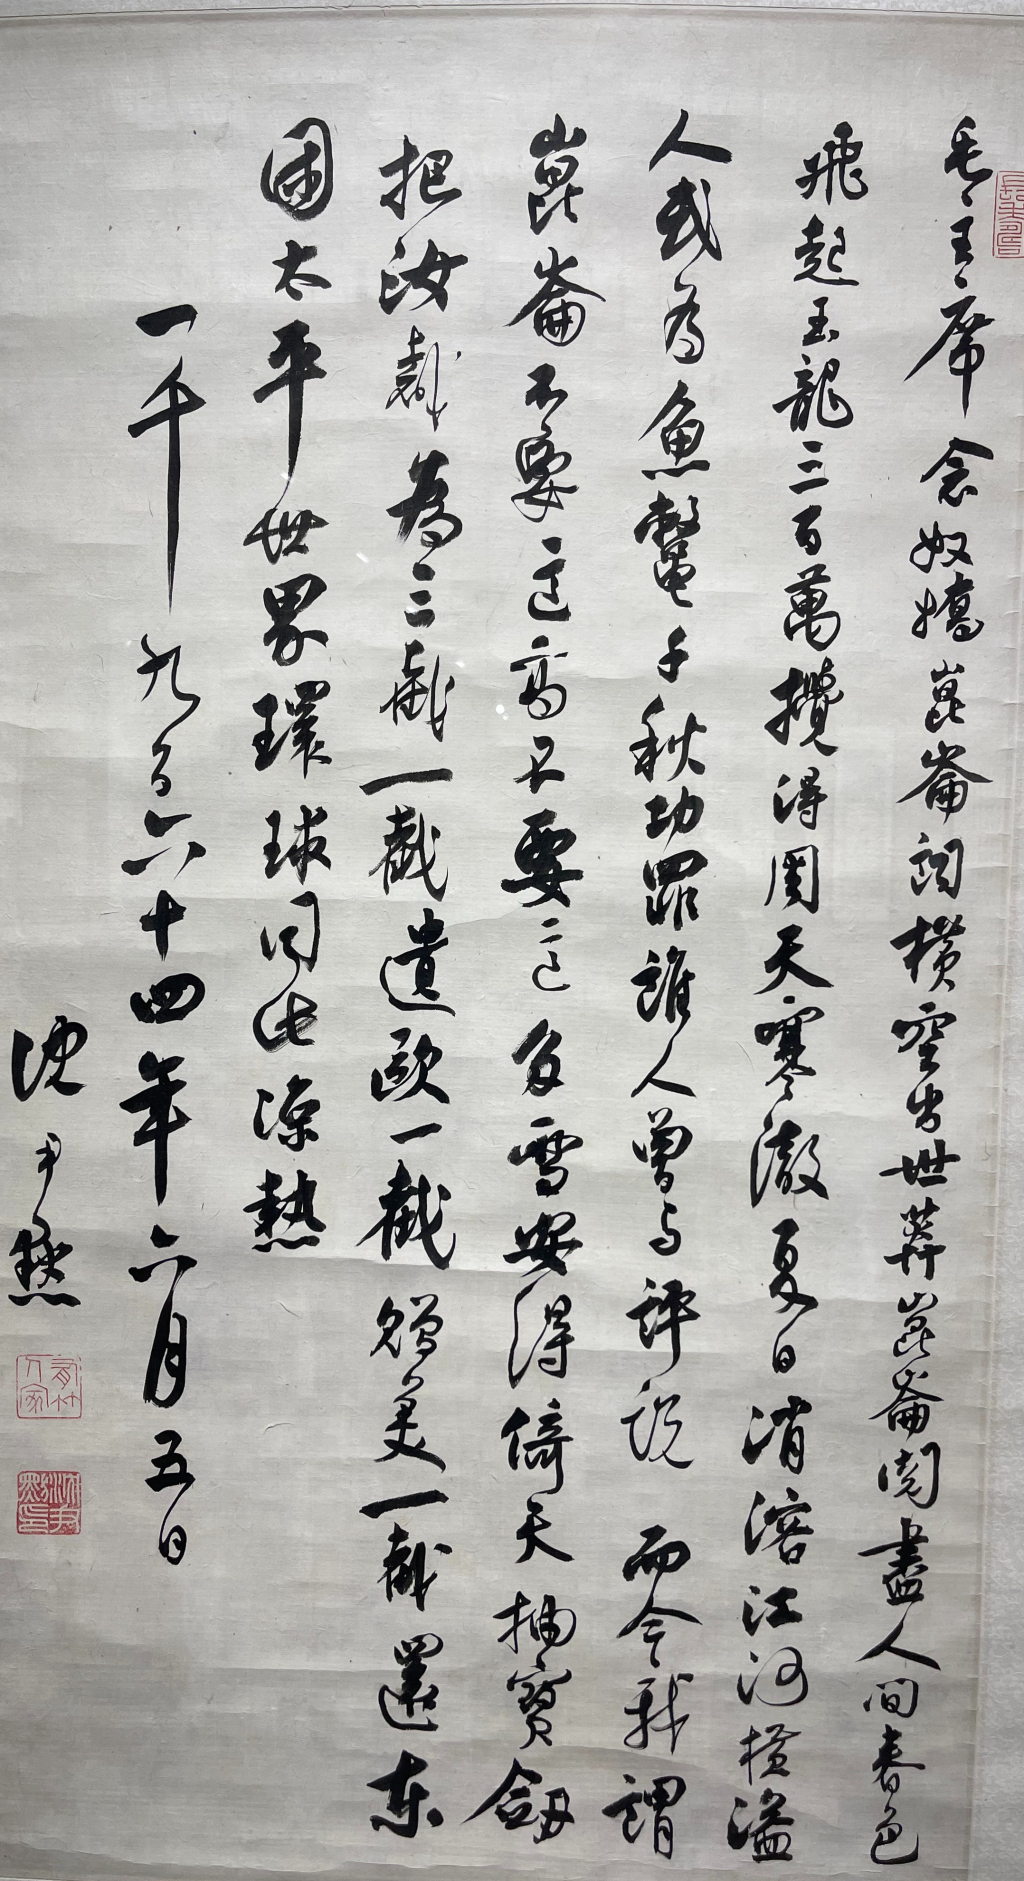 毛主席 念奴嬌 崑崙詞 橫空出世莽崑崙閱盡人間春色
飛起玉龍三百萬攪得周天寒澈夏日消溶江河橫溢
人或為魚鼈千秋功罪誰人曾與評說 而今我謂
崑崙不要這高不要這多雪安得倚天抽寶劔
把汝裁為三截一截遺歐一截贈美一截還東
國太平世界環球同此涼熱
一千九百六十四年六月五日
沈尹默
有竹人家
沈尹默印